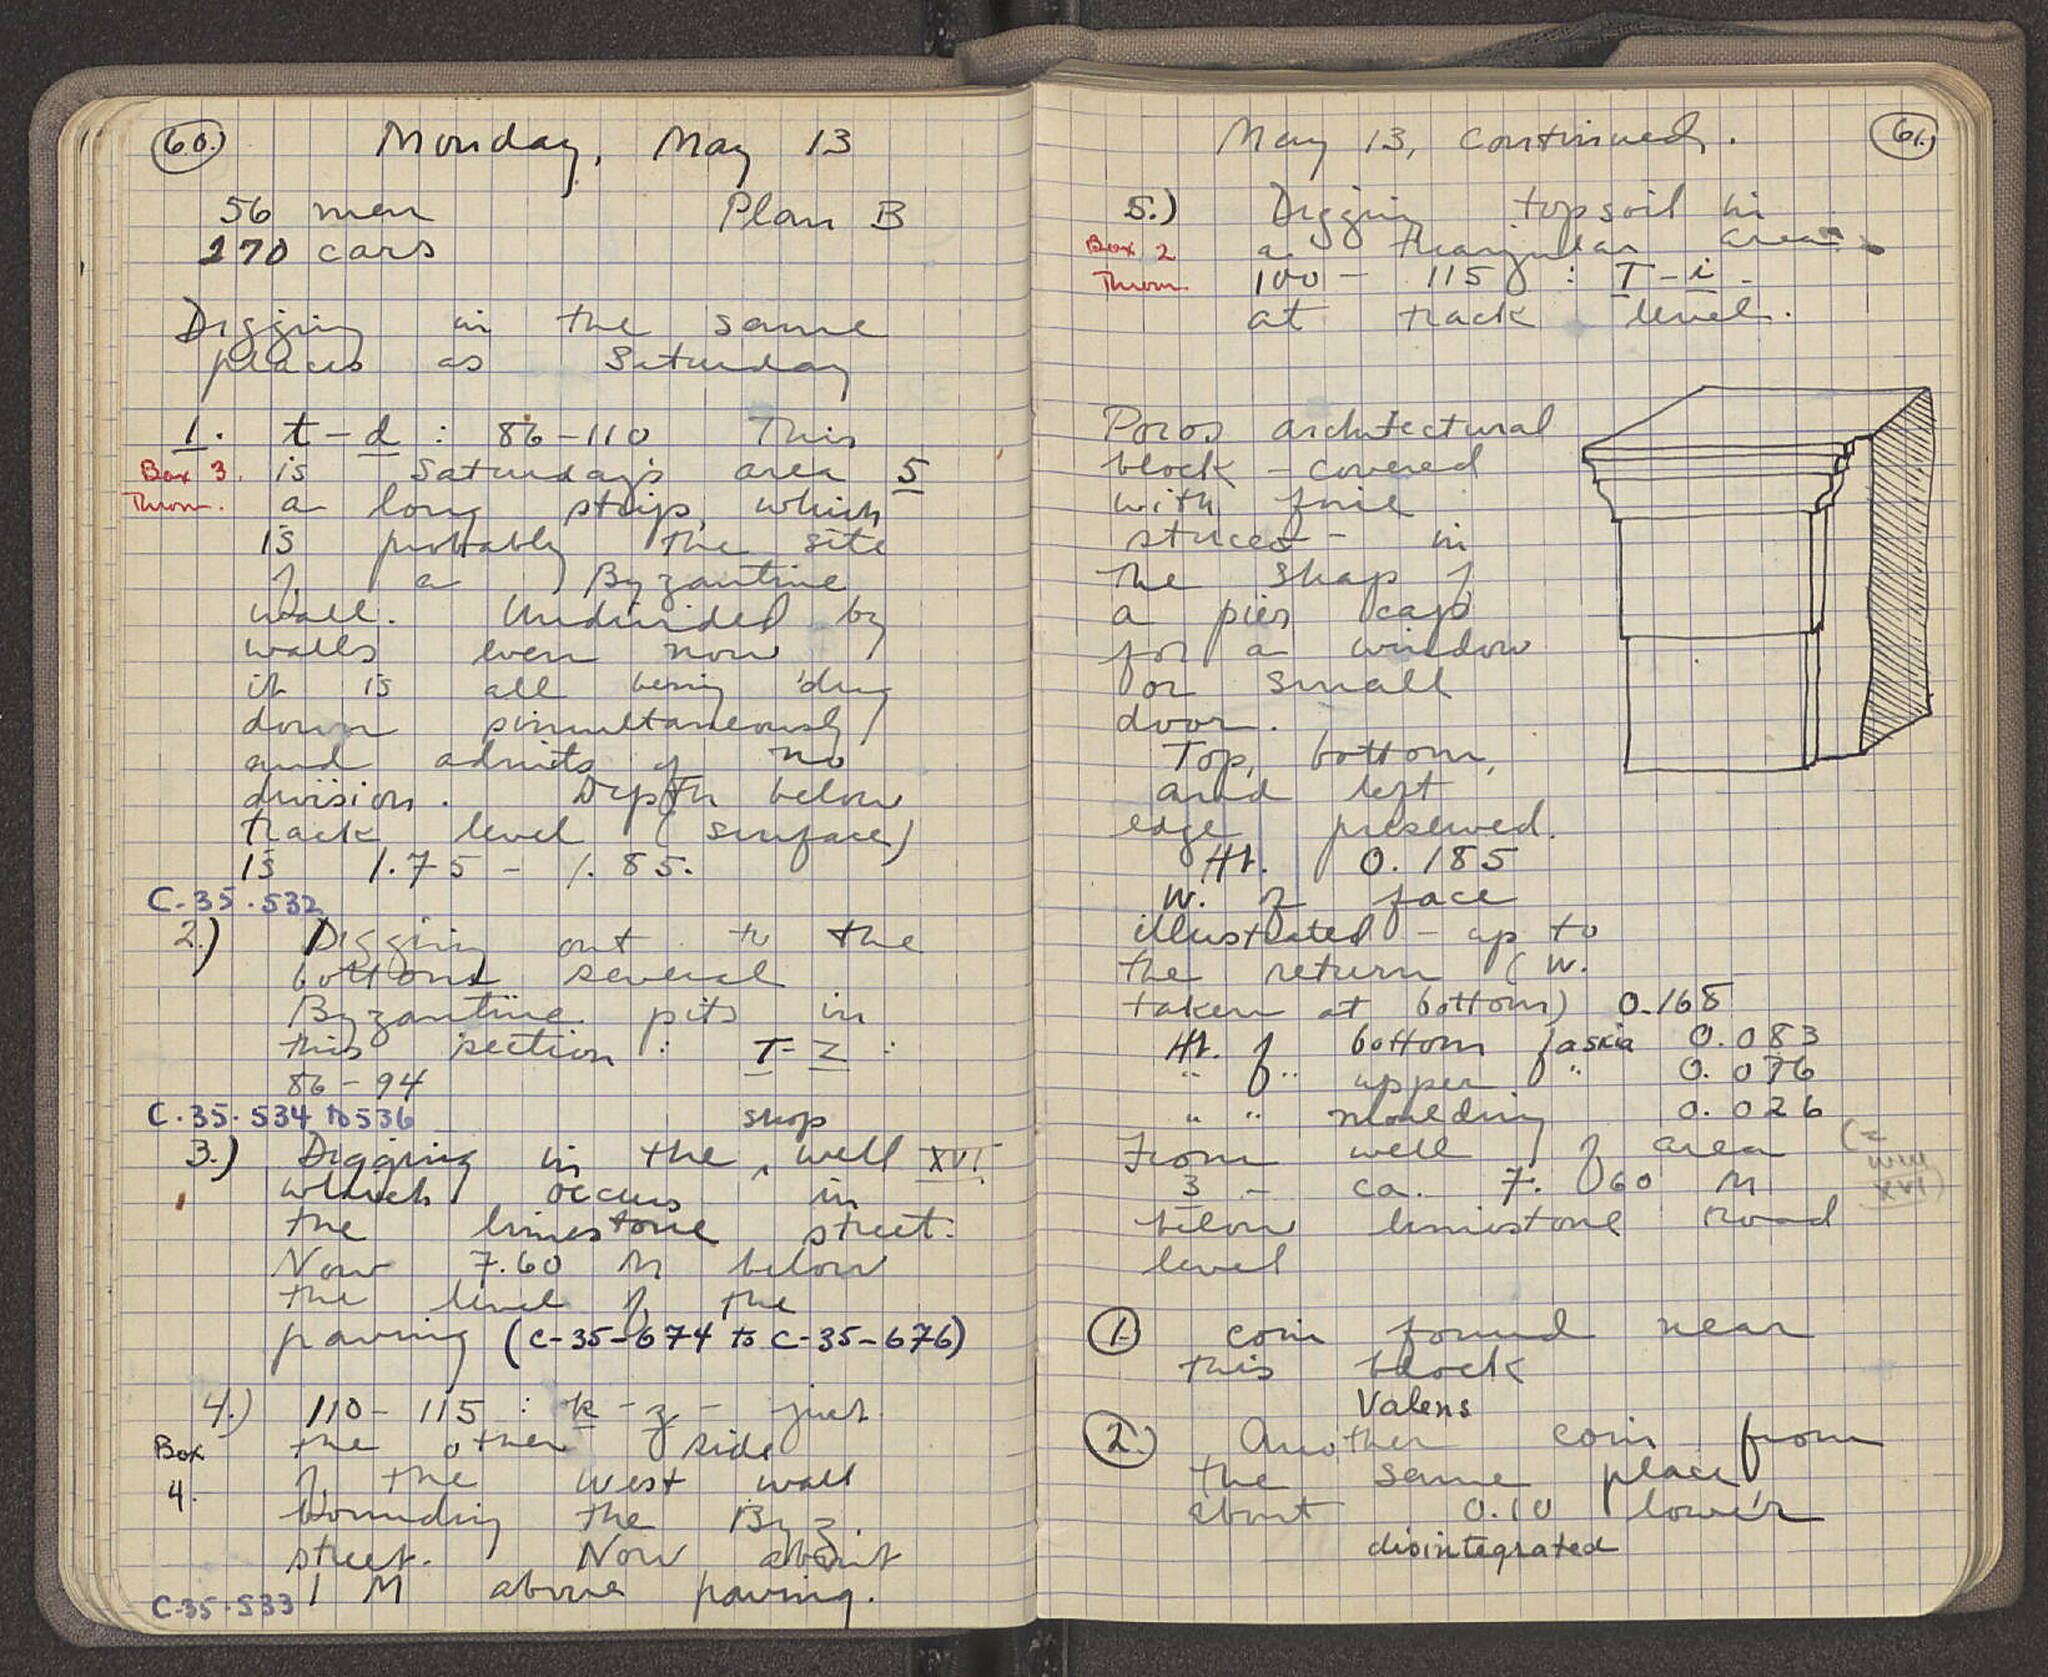 60.) Monday, May 13
56 men Plan B
270 cars
Digging in the same
places as Saturday
1. t-d : 86-110 This
Box 3. is Saturday's area 5
Throm. a long strip, which
is probably the site
of a Byzantine
wall. Undivided by
walls even now
it is all being dug
down simultaneously
and admits of no
division. Depth below
track level (surface)
is 1.75 - 1.85.
C-35-532
2.) Digging out to the
bottoms several
Byzantine pits in
this section : T-Z :
86-94
C-35-534 to 536 shop
3.) Digging in the ^ well XVI
which occurs in
the limestone street.
Now 7.60 M below
the level of the
paving (C-35-674 to C-35-676)
4.) 110-115 : k-z - just
Box the other side
4. of the west wall
bounding the Byz.
street. Now about
1 M above paving.
C-35-533
May 13, continued. 61.)
5.) Digging topsoil in
Box 2 a triangular area
Throm. 100 - 115 : T-i
at track level.
Poros architectural
block - covered
with fine
stucco - in
the shap of
a pier cap
for a window
or small
door.
Top, bottom,
and left
edge preserved.
Ht. 0.185
W. of face
illustrated - up to
the return (W.
taken at bottom) 0.168
Ht. of bottom fascia 0.083
" " upper " 0.076
" " moulding 0.026
From well of area (=
3 - ca. 7.60 M well XVI)
below limestone road
level
1. coin found near
this block
Valens
2.) Another coin from
the same place
about 0.10 lower
disintegrated